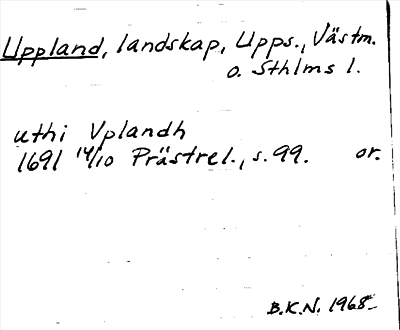 Uppland, landskap, Upps., Västm.
o. Sthlms l.
uthi Vplandh
1691 14/10 Prästrel., s. 99. or.
B.K.N. 1968